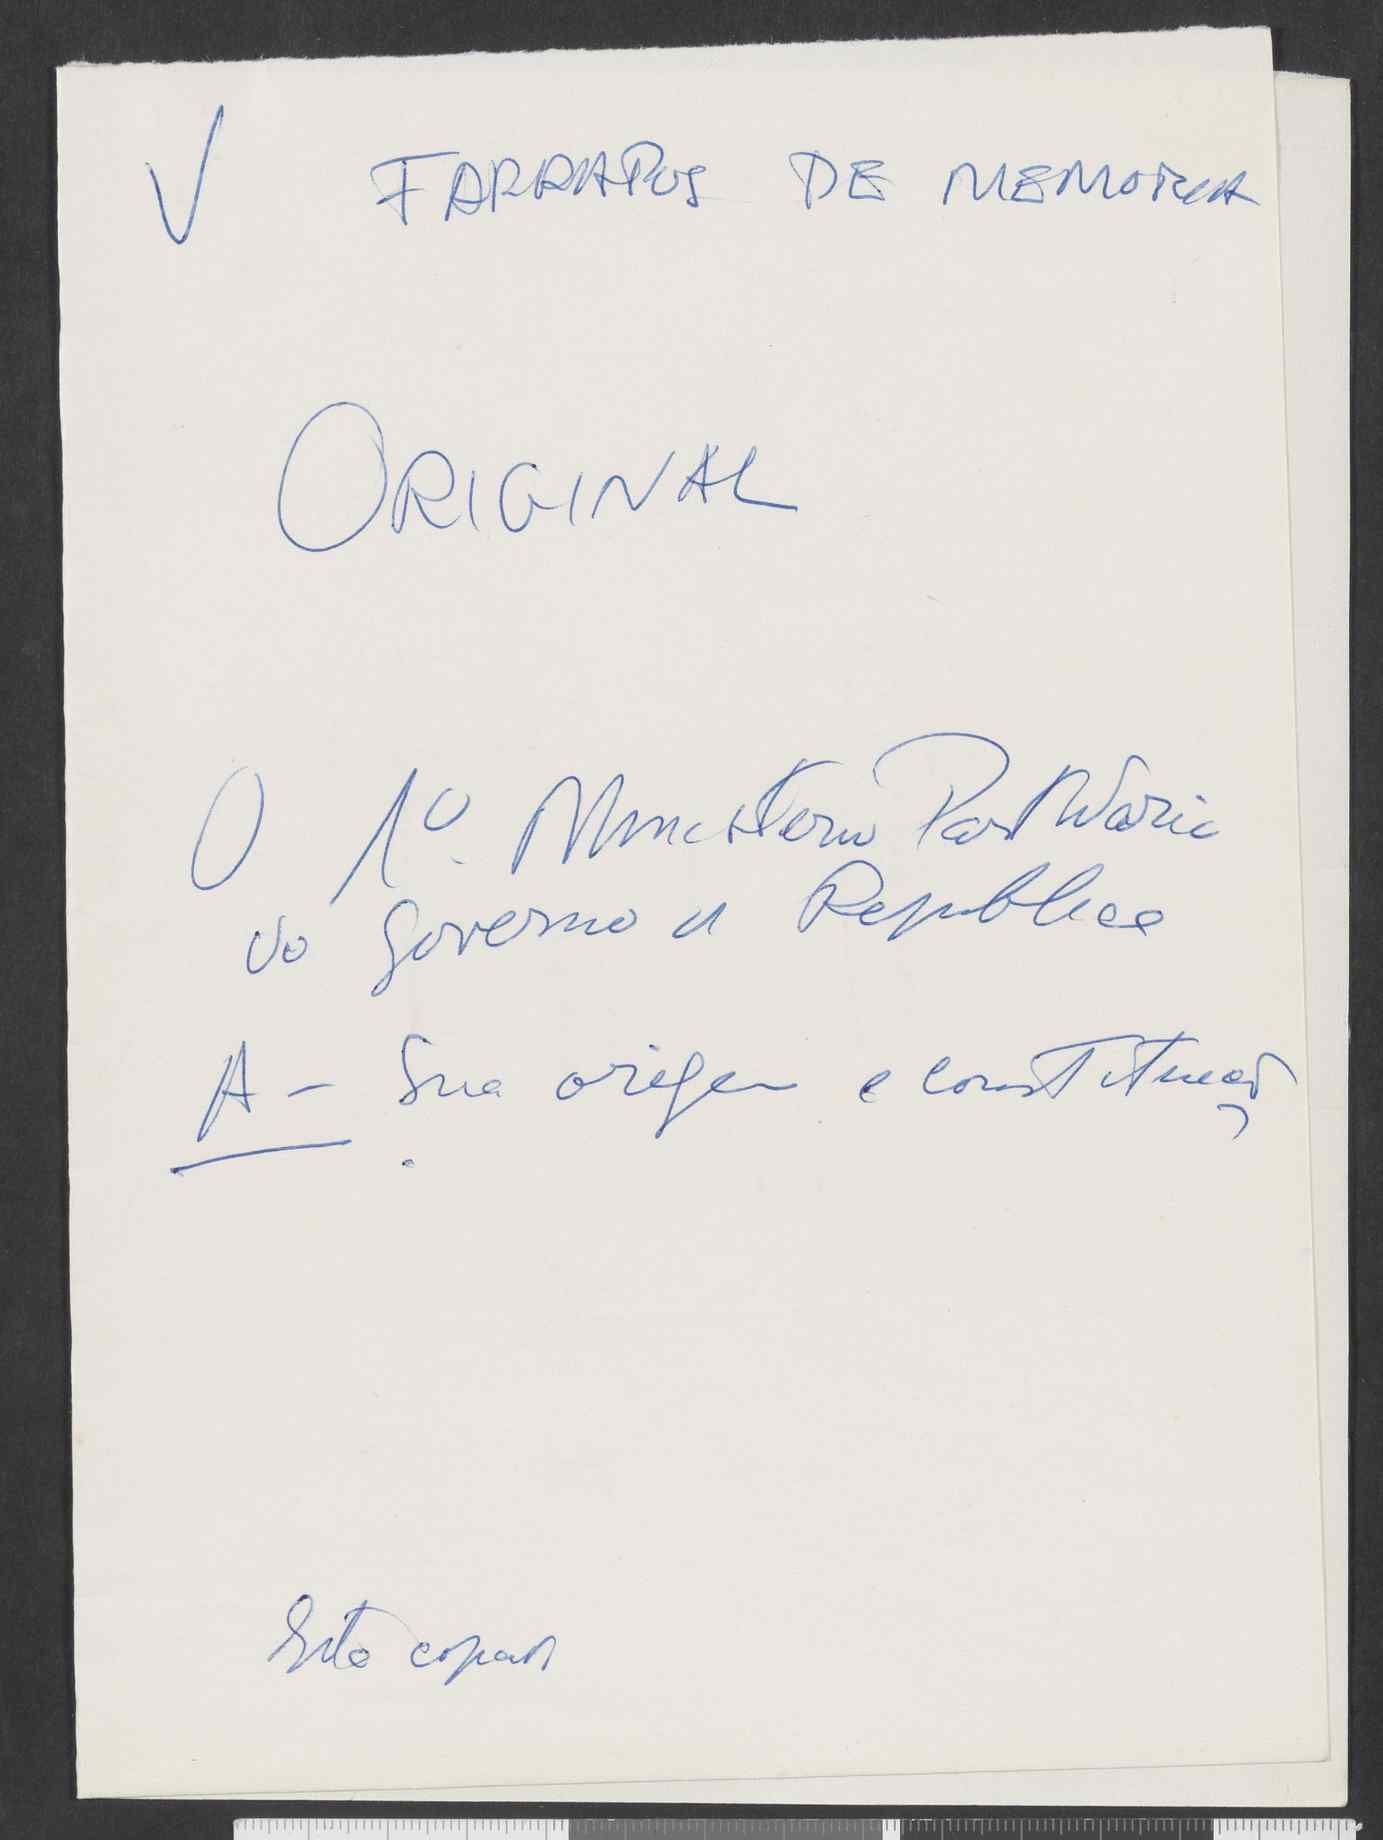 V FARRAPOS DE MEMORIA
ORIGINAL
O 1º Ministerio Partidario
do Governo da Republica
A - Sua origem e constituição
Está copiado